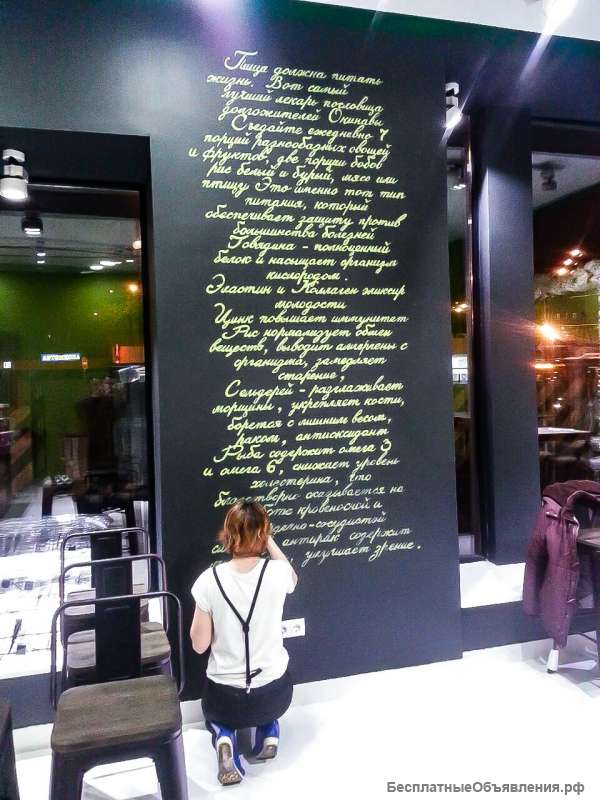 Пища должна питать
жизнь. Вот самый
лучший лекарь пословица
долгожителей Окинавы
Съедайте ежедневно 7
порций разнообразных овощей
и фруктов, две порции бобов
рис белый и бурый, мясо или
птицу Это именно тот тип
питания, который
обеспечивает защиту против
большинства болезней
Говядина - полноценный
белок и насыщает организм
кислородом.
Эластин и Коллаген эликсир
молодости
Цинк повышает иммунитет
Рис нормализует обмен
веществ, выводит аллергены с
организма, замедляет
старение,
Сельдерей - разглаживает
морщины, укрепляет кости,
борется с лишним весом,
раком, антиоксидант
Рыба содержит омега 3
и омега 6, снижает уровень
холестерина, что
благотворно оказывается на
кровеносной и
сосудистой
антирак содержит
улучшает зрение.
АВТОМОЙКА
БесплатныеОбъявления.рф